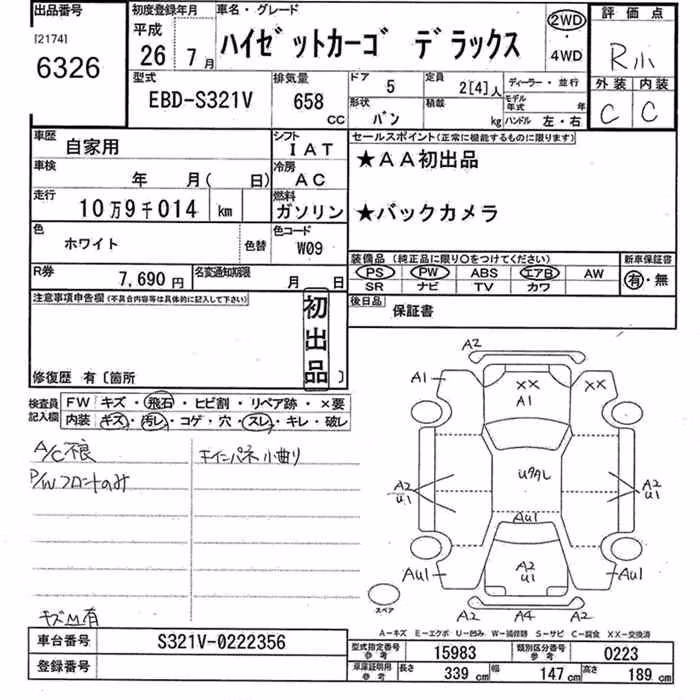 出品番号 初度登録年月 車名・グレード 評価点
[2174] 平成
6326 26年 7月 ハイゼットカーゴ デラックス 2WD 4WD R小
型式 排気量 ドア 5 定員 2[4]人 ディーラー・並行 外装 内装
EBD-S321V 658 CC 形状 バン 積載 kg モデル年式 年 ハンドル 左・右 C C
車歴 自家用 シフト IAT セールスポイント(正常に機能するものに限ります)
車検 年 月( 日) 冷房 AC ★AA初出品
走行 10万9千014 km 燃料 ガソリン ★バックカメラ
色 ホワイト 色替 色コード W09
装備品 (純正品に限り〇をつけてください) 新車保証書
PS PW ABS エアB AW 有・無
SR ナビ TV カワ
R券 7,690円 名変通知期限 月 日
後日品 保証書
注意事項申告欄(不具合内容等は具体的に記入して下さい) 初出品
修復歴 有〔箇所 〕
検査員記入欄 FW キズ・飛石・ヒビ割・リペア跡・×要
内装 キズ・汚レ・コゲ・穴・スレ・キレ・破レ
A/C不良
P/Wフロントのみ
キズM有
A2
A1 XX A1 XX
A2 U1 A2 U1
AU1
AU1 A2 U1 AU1
A2 A4 A2
スペア
A-キズ E-エクボ U-凹み W-補修跡 S-サビ C-腐食 XX-交換済
車台番号 S321V-0222356
登録番号
型式指定番号 参考 15983 類別区分番号 参考 0223
車庫証明用 参考 長さ 339cm 幅 147cm 高さ 189cm